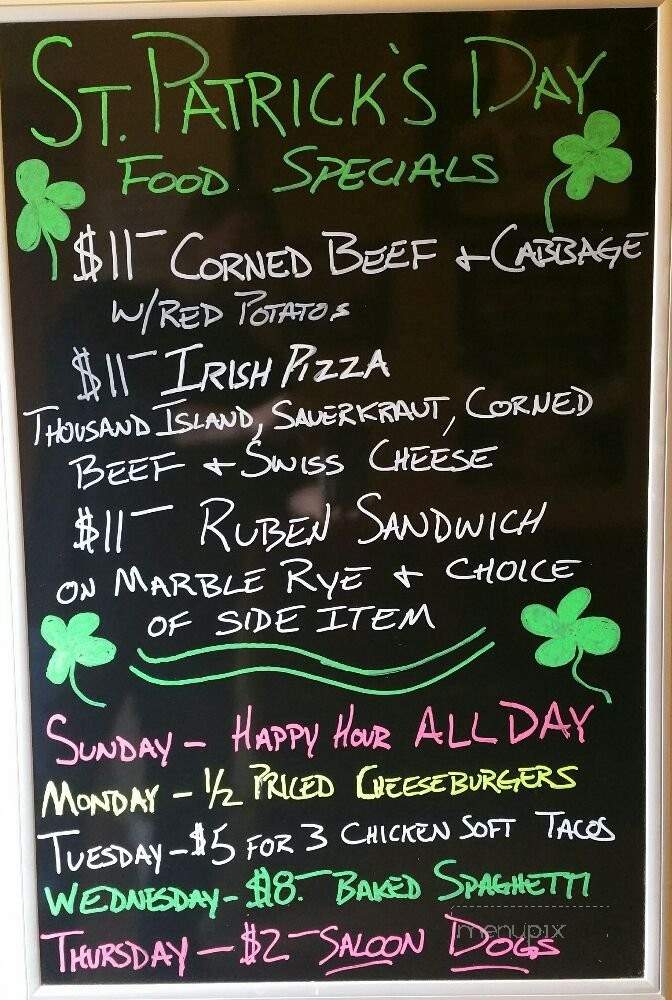 ST. PATRICK'S DAY
FOOD SPECIALS
$11- CORNED BEEF + CABBAGE
W/RED POTATOS
$11- IRISH PIZZA
THOUSAND ISLAND, SAUERKRAUT, CORNED
BEEF + SWISS CHEESE
$11- RUBEN SANDWICH
ON MARBLE RYE + CHOICE
OF SIDE ITEM
SUNDAY - HAPPY HOUR ALL DAY
MONDAY - 1/2 PRICED CHEESEBURGERS
TUESDAY - $5 FOR 3 CHICKEN SOFT TACOS
WEDNESDAY - $8.- BAKED SPAGHETTI
THURSDAY - $2- SALOON DOGS
menupix